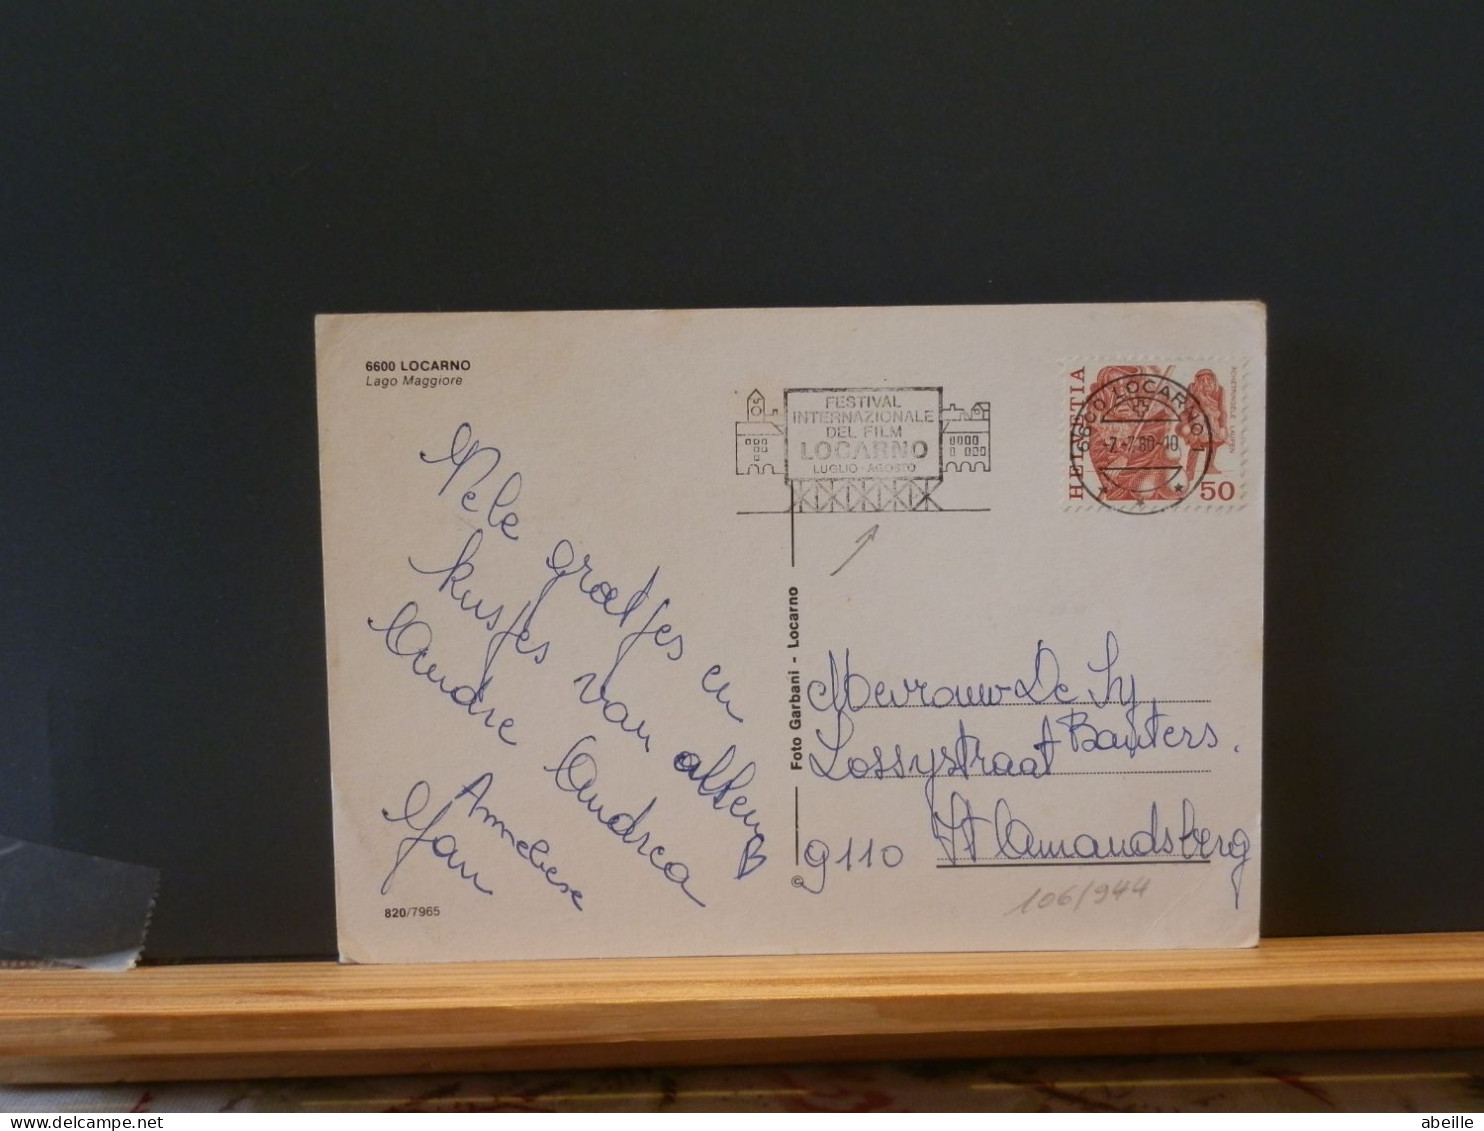 6600 LOCARNO
Lago Maggiore
Vele groetjes en
kusjes van allen
Andre Andrea
Anneliese
Jan
820/7965
© Foto Garbani - Locarno
FESTIVAL
INTERNAZIONALE
DEL FILM
LOCARNO
LUGLIO - AGOSTO
6600 LOCARNO 1
-7.-7.80-10
HELVETIA
50
Mevrouw De Sy
Bauters.
Lossystraat
9110 St Amandsberg
106/944
abeille